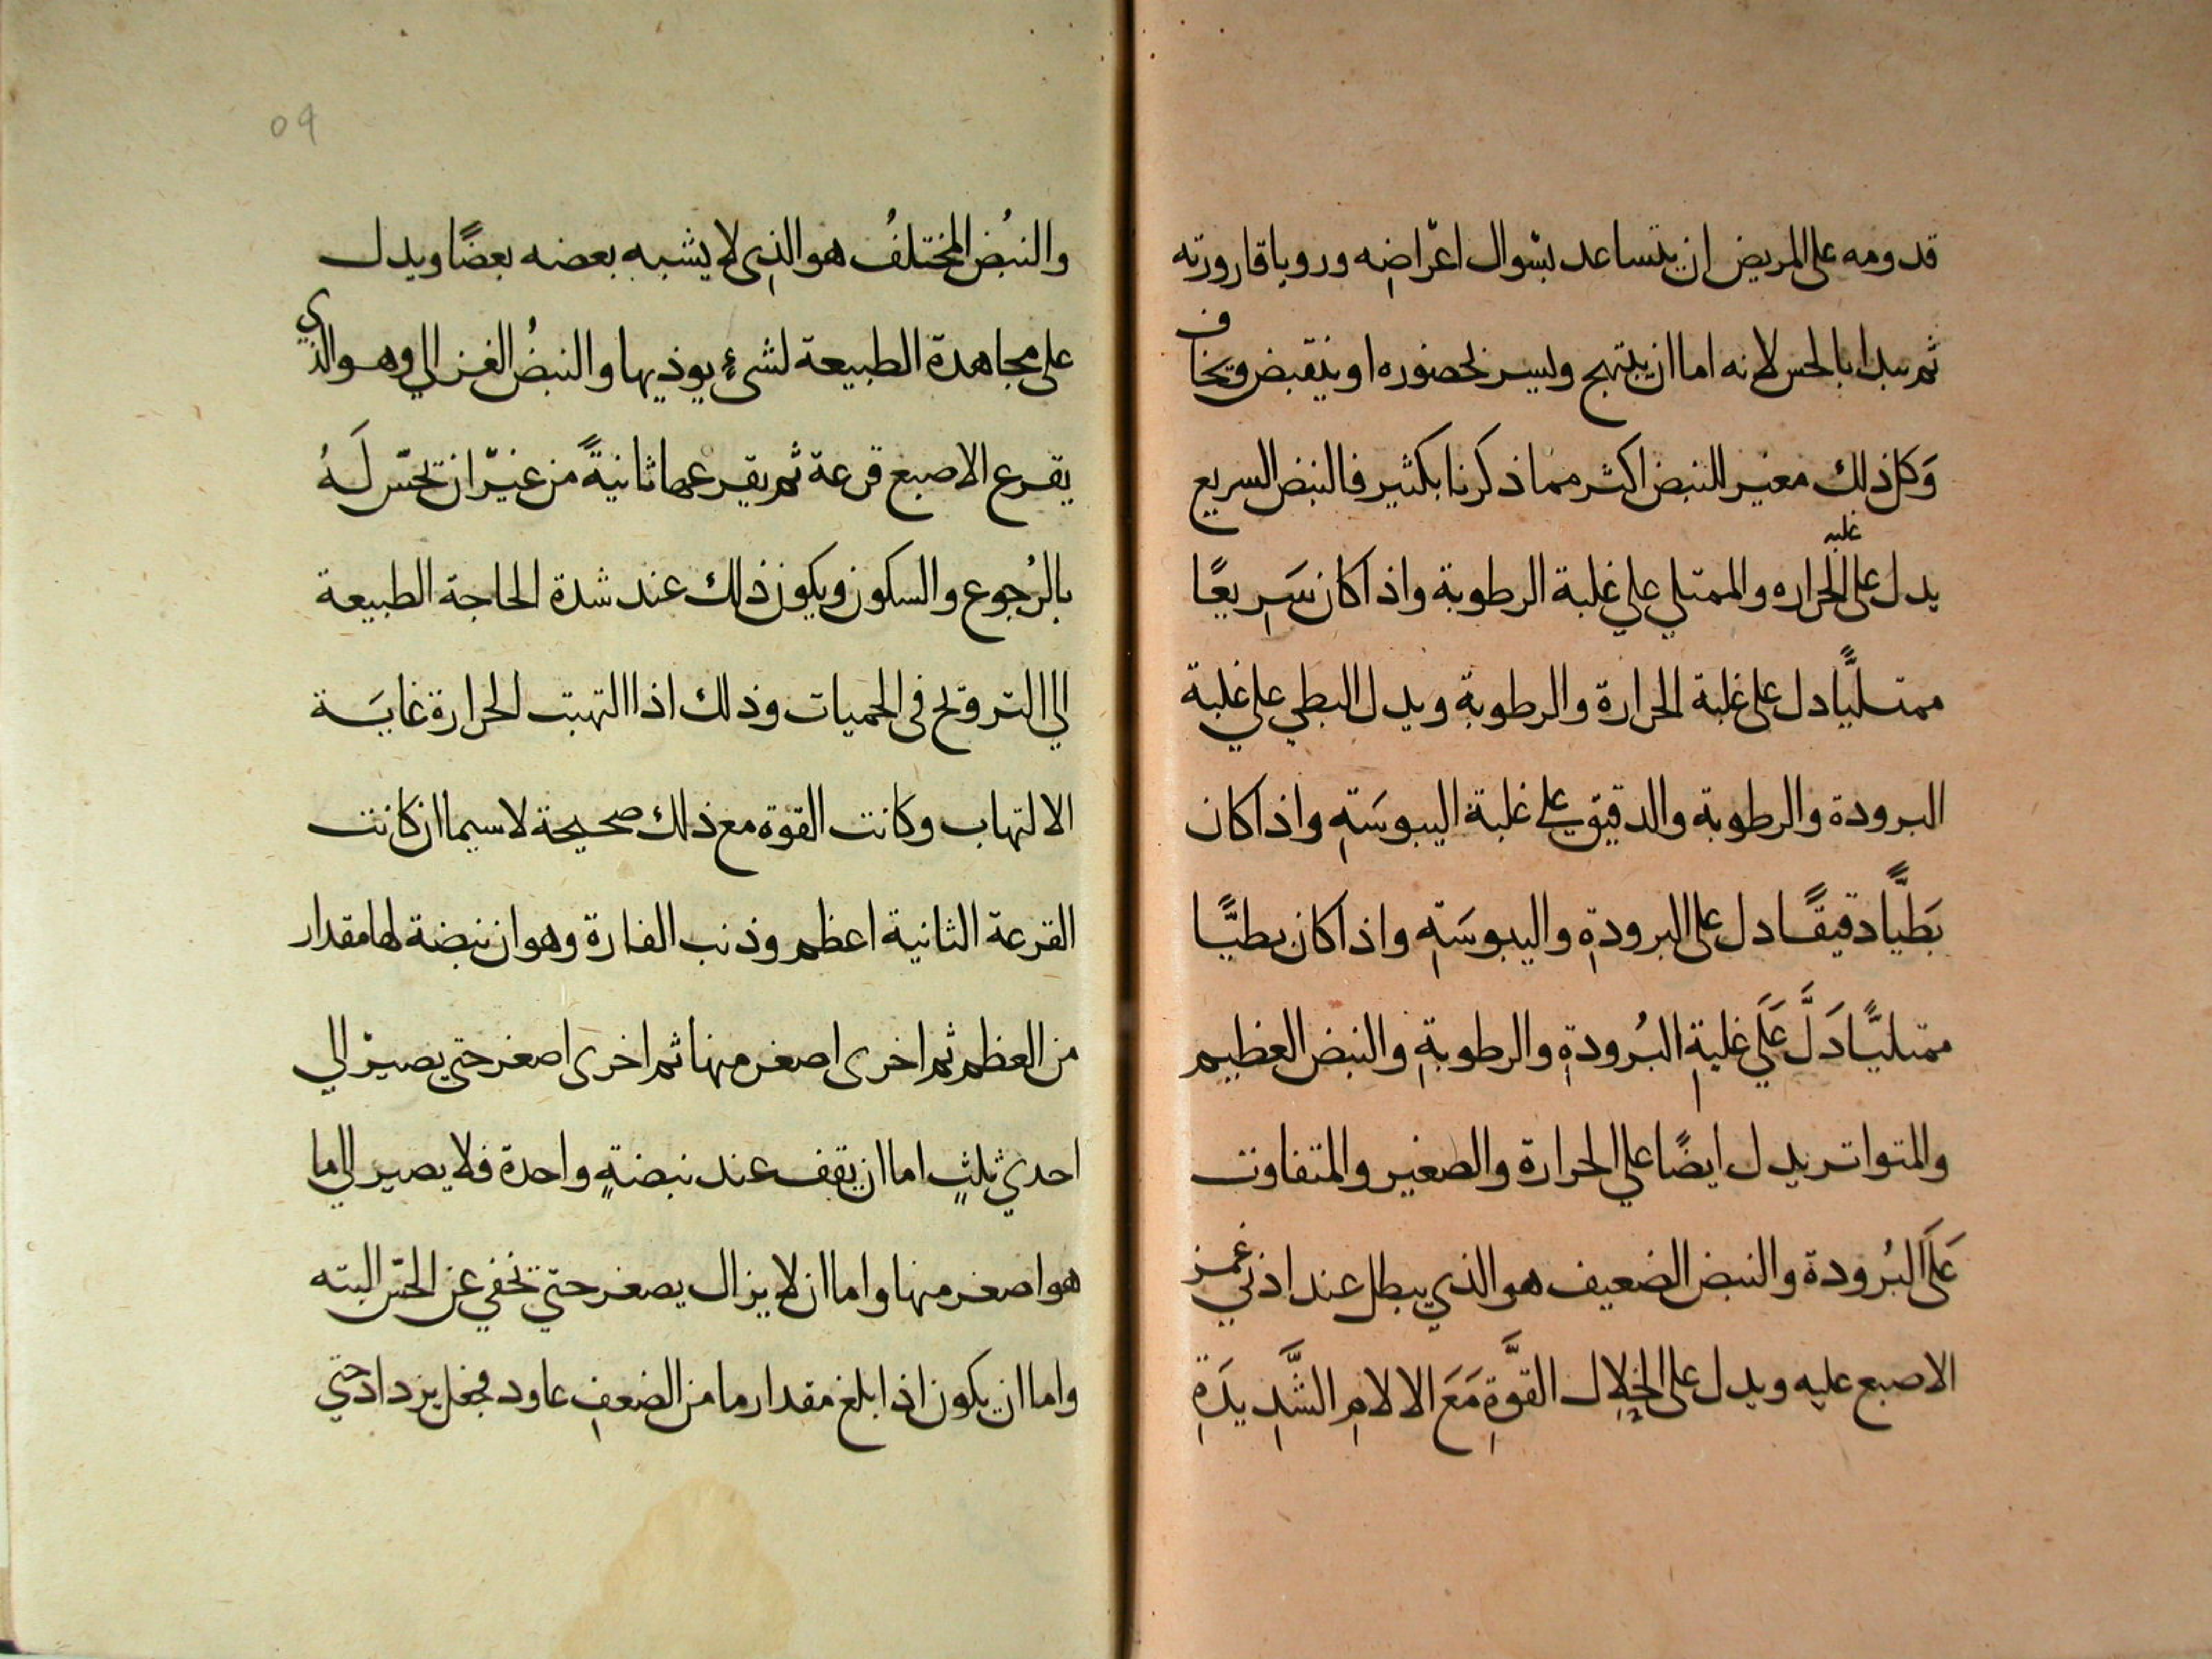 قدومه على المريض ان يتساعد بسوال اعراضه ورويا قارورته
ثم يبدا بالحس لانه اما ان يبتهج ويسر لحضوره او ينقبض ويخاف
وَكل ذلك مغير للنبض اكثر مما ذكرنا بكثير فالنبض السريع
يدل على غلبه الحراره والممتلي علي غلبة الرطوبة واذا كان سَرِيعًا
ممتليًّا دل على غلبة الحرارة والرطوبة ويدل البطي علي غلبة
البرودة والرطوبة والدقيق علي غلبة اليبوسَةِ واذا كان
بَطيًّا دقيقًا دل على البرودةِ واليبوسَةِ واذا كان بطيًّا
ممتليًّا دَلَّ عَلَي غلبةِ البُرودةِ والرطوبةِ والنبض العظيم
والمتواتر يدل ايضًا علي الحرارة والصغير والمتفاوت
عَلَى البُرودة والنبض الضعيف هو الذي يبطل عند ادني غمز
الاصبع عليه ويدل على انحلال القوَّةِ مَعَ الالامِ الشَّدِيدَةِ
09
والنبُض المختلفُ هو الذِى لا يشبه بعضه بعضًا ويدل
على مجاهدة الطبيعة لشئٍ يوذيها والنبضُ الغزالي وهو الذي
يقرع الاصبع قرعة ثم يقرعها ثانيةً من غيرْ ان تحسّ لَهُ
بالرُجوع والسكون ويكون ذلك عند شدة الحاجة الطبيعة
الي الترويح فى الحميات وذلك اذا التهبت الحرارة غايَة
الالتهاب وكانت القوة مع ذلك صحيحة لاسيما ان كانت
القرعة الثانية اعظم وذنب الفارة وهو ان نبضة لها مقدار
من العظم ثم اخرى اصغر منها ثم اخرى اصغر حتى يصيرْ الي
احدي ثلثٍ اما ان يقف عند نبضةٍ واحدة فلا يصير الى ما
هو اصغر منها واما ان لا يزال يصغر حتي تخفي عن الحسّ البته
واما ان يكون اذا بلغ مقدار ما من الضعفِ عاود فجعل يزداد حتي